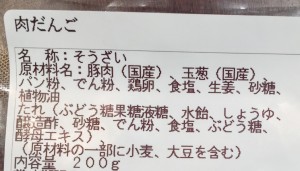 肉だんご
名　称：そうざい
原材料名：豚肉（国産）、玉葱（国産）、
パン粉、でん粉、鶏卵、食塩、生姜、砂糖、
植物油
たれ（ぶどう糖果糖液糖、水飴、しょうゆ、
醸造酢、砂糖、でん粉、食塩、ぶどう糖、
酵母エキス）
（原材料の一部に小麦、大豆を含む）
内容量　２００ｇ